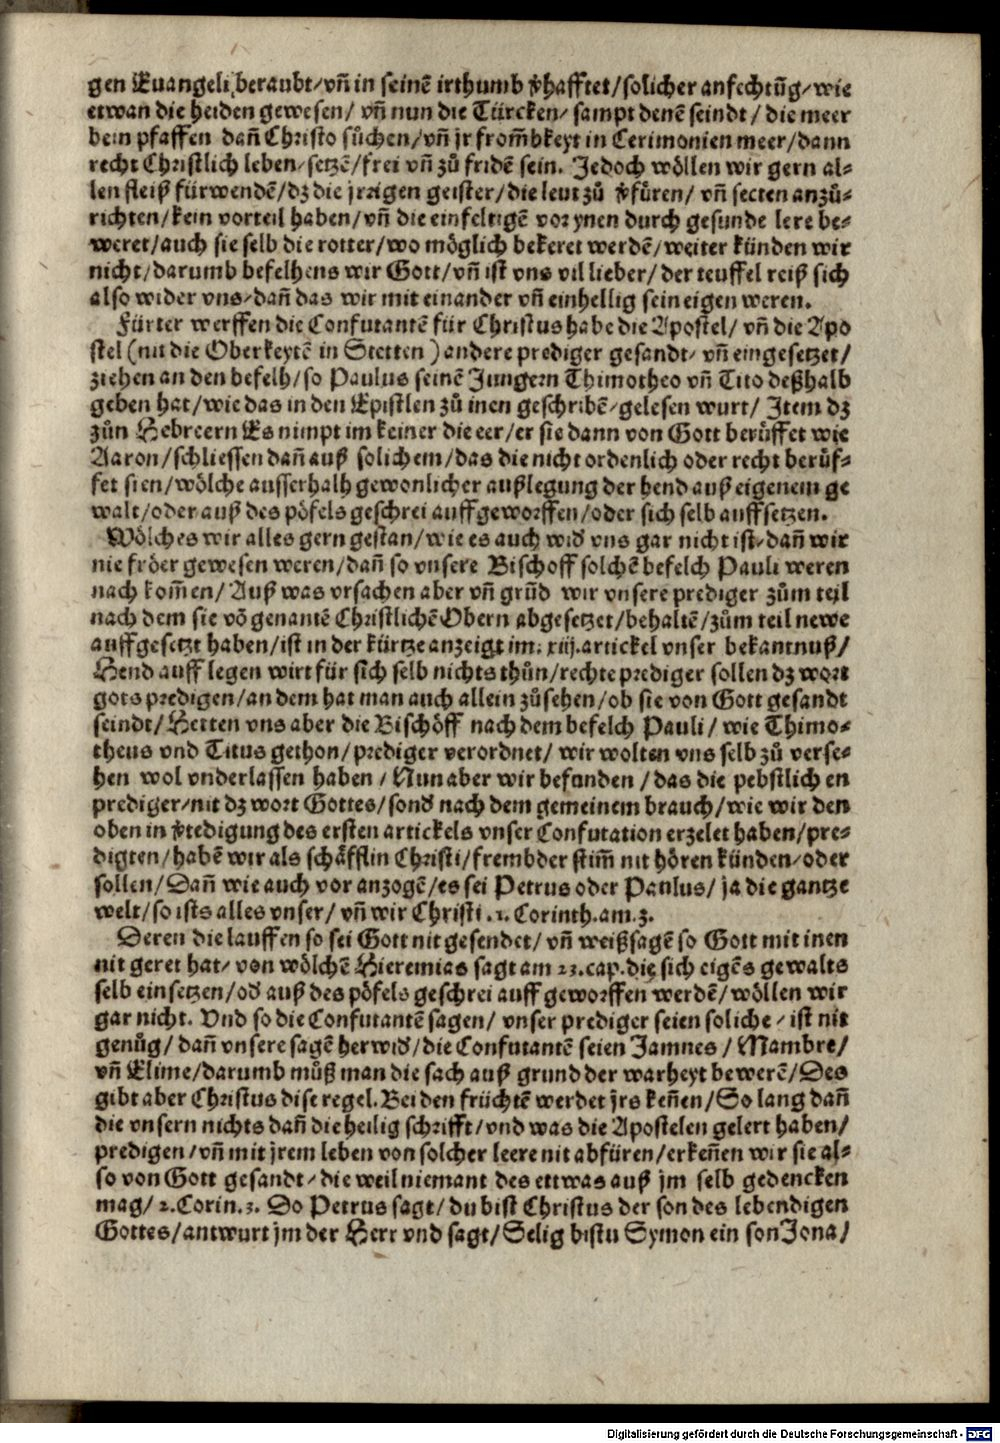 gen Euangeli beraubt/vñ in seinē irthumb v̄hafftet/solicher anfechtūg/wie
etwan die heiden gewesen/ vñ nun die Türcken/ sampt denē seindt/ die meer
bein pfaffen dañ Christo sůchen/vñ jr from̄bkeyt in Cerimonien meer/dann
recht Christlich leben/setzē/frei vñ zů fridē sein. Jedoch wöllen wir gern al⸗
len fleiß fürwendē/dz die jrrigen geister/die leut zů v̄füren/ vñ secten anzů⸗
richten/kein vorteil haben/vñ die einfeltigē vor ynen durch gesunde lere be⸗
weret/auch sie selb die rotter/wo möglich bekeret werdē/weiter künden wir
nicht/darumb befelhens wir Gott/vñ ist vns vil lieber/der teuffel reiß sich
also wider vns/dañ das wir mit einander vñ einhellig sein eigen weren.
Fürter werffen die Confutantē für Christus habe die Apostel/ vñ die Apo
stel (nit die Oberkeytē in Stetten) andere prediger gesandt/ vñ eingesetzet/
ziehen an den befelh/so Paulus seinē Jungern Thimotheo vñ Tito deßhalb
geben hat/wie das in den Epistlen zů inen geschribē/gelesen wurt/ Item dz
zůn Hebreern Es nimpt im keiner die eer/er sie dann von Gott berůffet wie
Aaron/schliessen dañ auß solichem/das die nicht ordenlich oder recht berůf⸗
fet sien/wölche ausserhalb gewonlicher außlegung der hend auß eigenem ge
walt/oder auß des pöfels geschrei auffgeworffen/oder sich selb auffsetzen.
Wölches wir alles gern gestan/wie es auch wid̄ vns gar nicht ist/dañ wir
nie fröer gewesen weren/dañ so vnsere Bischoff solchē befelch Pauli weren
nach kom̄en/Auß was vrsachen aber vñ grūd wir vnsere prediger zům teil
nach dem sie vō genantē Christlichē Obern abgesetzet/behaltē/zům teil newe
auffgesetzt haben/ist in der kürtze anzeigt im. xiij. artickel vnser bekantnuß/
Hend auff legen wirt für sich selb nichts thůn/rechte prediger sollen dz wort
gots predigen/an dem hat man auch allein zůsehen/ob sie von Gott gesandt
seindt/Hetten vns aber die Bischöff nach dem befelch Pauli/ wie Thimo⸗
theus vnd Titus gethon/prediger verordnet/ wir wolten vns selb zů verse⸗
hen wol vnderlassen haben/Nun aber wir befunden/das die pebstlich en
prediger/nit dz wort Gottes/sond̄ nach dem gemeinem brauch/wie wir den
oben in v̄tedigung des ersten artickels vnser Confutation erzelet haben/pre⸗
digten/habē wir als schäfflin Christi/frembder stim̄ nit hören künden/oder
sollen/Dañ wie auch vor anzogē/es sei Petrus oder Paulus/ja die gantze
welt/so ists alles vnser/ vñ wir Christi .1. Corinth. am. 3.
Deren die lauffen so sei Gott nit gesendet/ vñ weißsagē so Gott mit inen
nit geret hat/von wölchē Hieremias sagt am 23. cap. die sich eigēs gewalts
selb einsetzen/od̄ auß des pöfels geschrei auff geworffen werdē/wöllen wir
gar nicht. Vnd so die Confutantē sagen/ vnser prediger seien soliche/ist nit
genůg/dañ vnsere sagē herwid̄/die Confutantē seien Jamnes/ Mambre/
vñ Elime/darumb můß man die sach auß grund der warheyt bewerē/Des
gibt aber Christus dise regel. Bei den früchtē werdet jrs keñen/So lang dañ
die vnsern nichts dañ die heilig schrifft/vnd was die Apostelen gelert haben/
predigen/vñ mit jrem leben von solcher leere nit abfüren/erkeñen wir sie al⸗
so von Gott gesandt/die weil niemant des ettwas auß jm selb gedencken
mag/ 2. Corin. 3. Do Petrus sagt/du bist Christus der son des lebendigen
Gottes/antwurt jm der Herr vnd sagt/Selig bistu Symon ein son Jona/
Digitalisierung gefördert durch die Deutsche Forschungsgemeinschaft - DFG